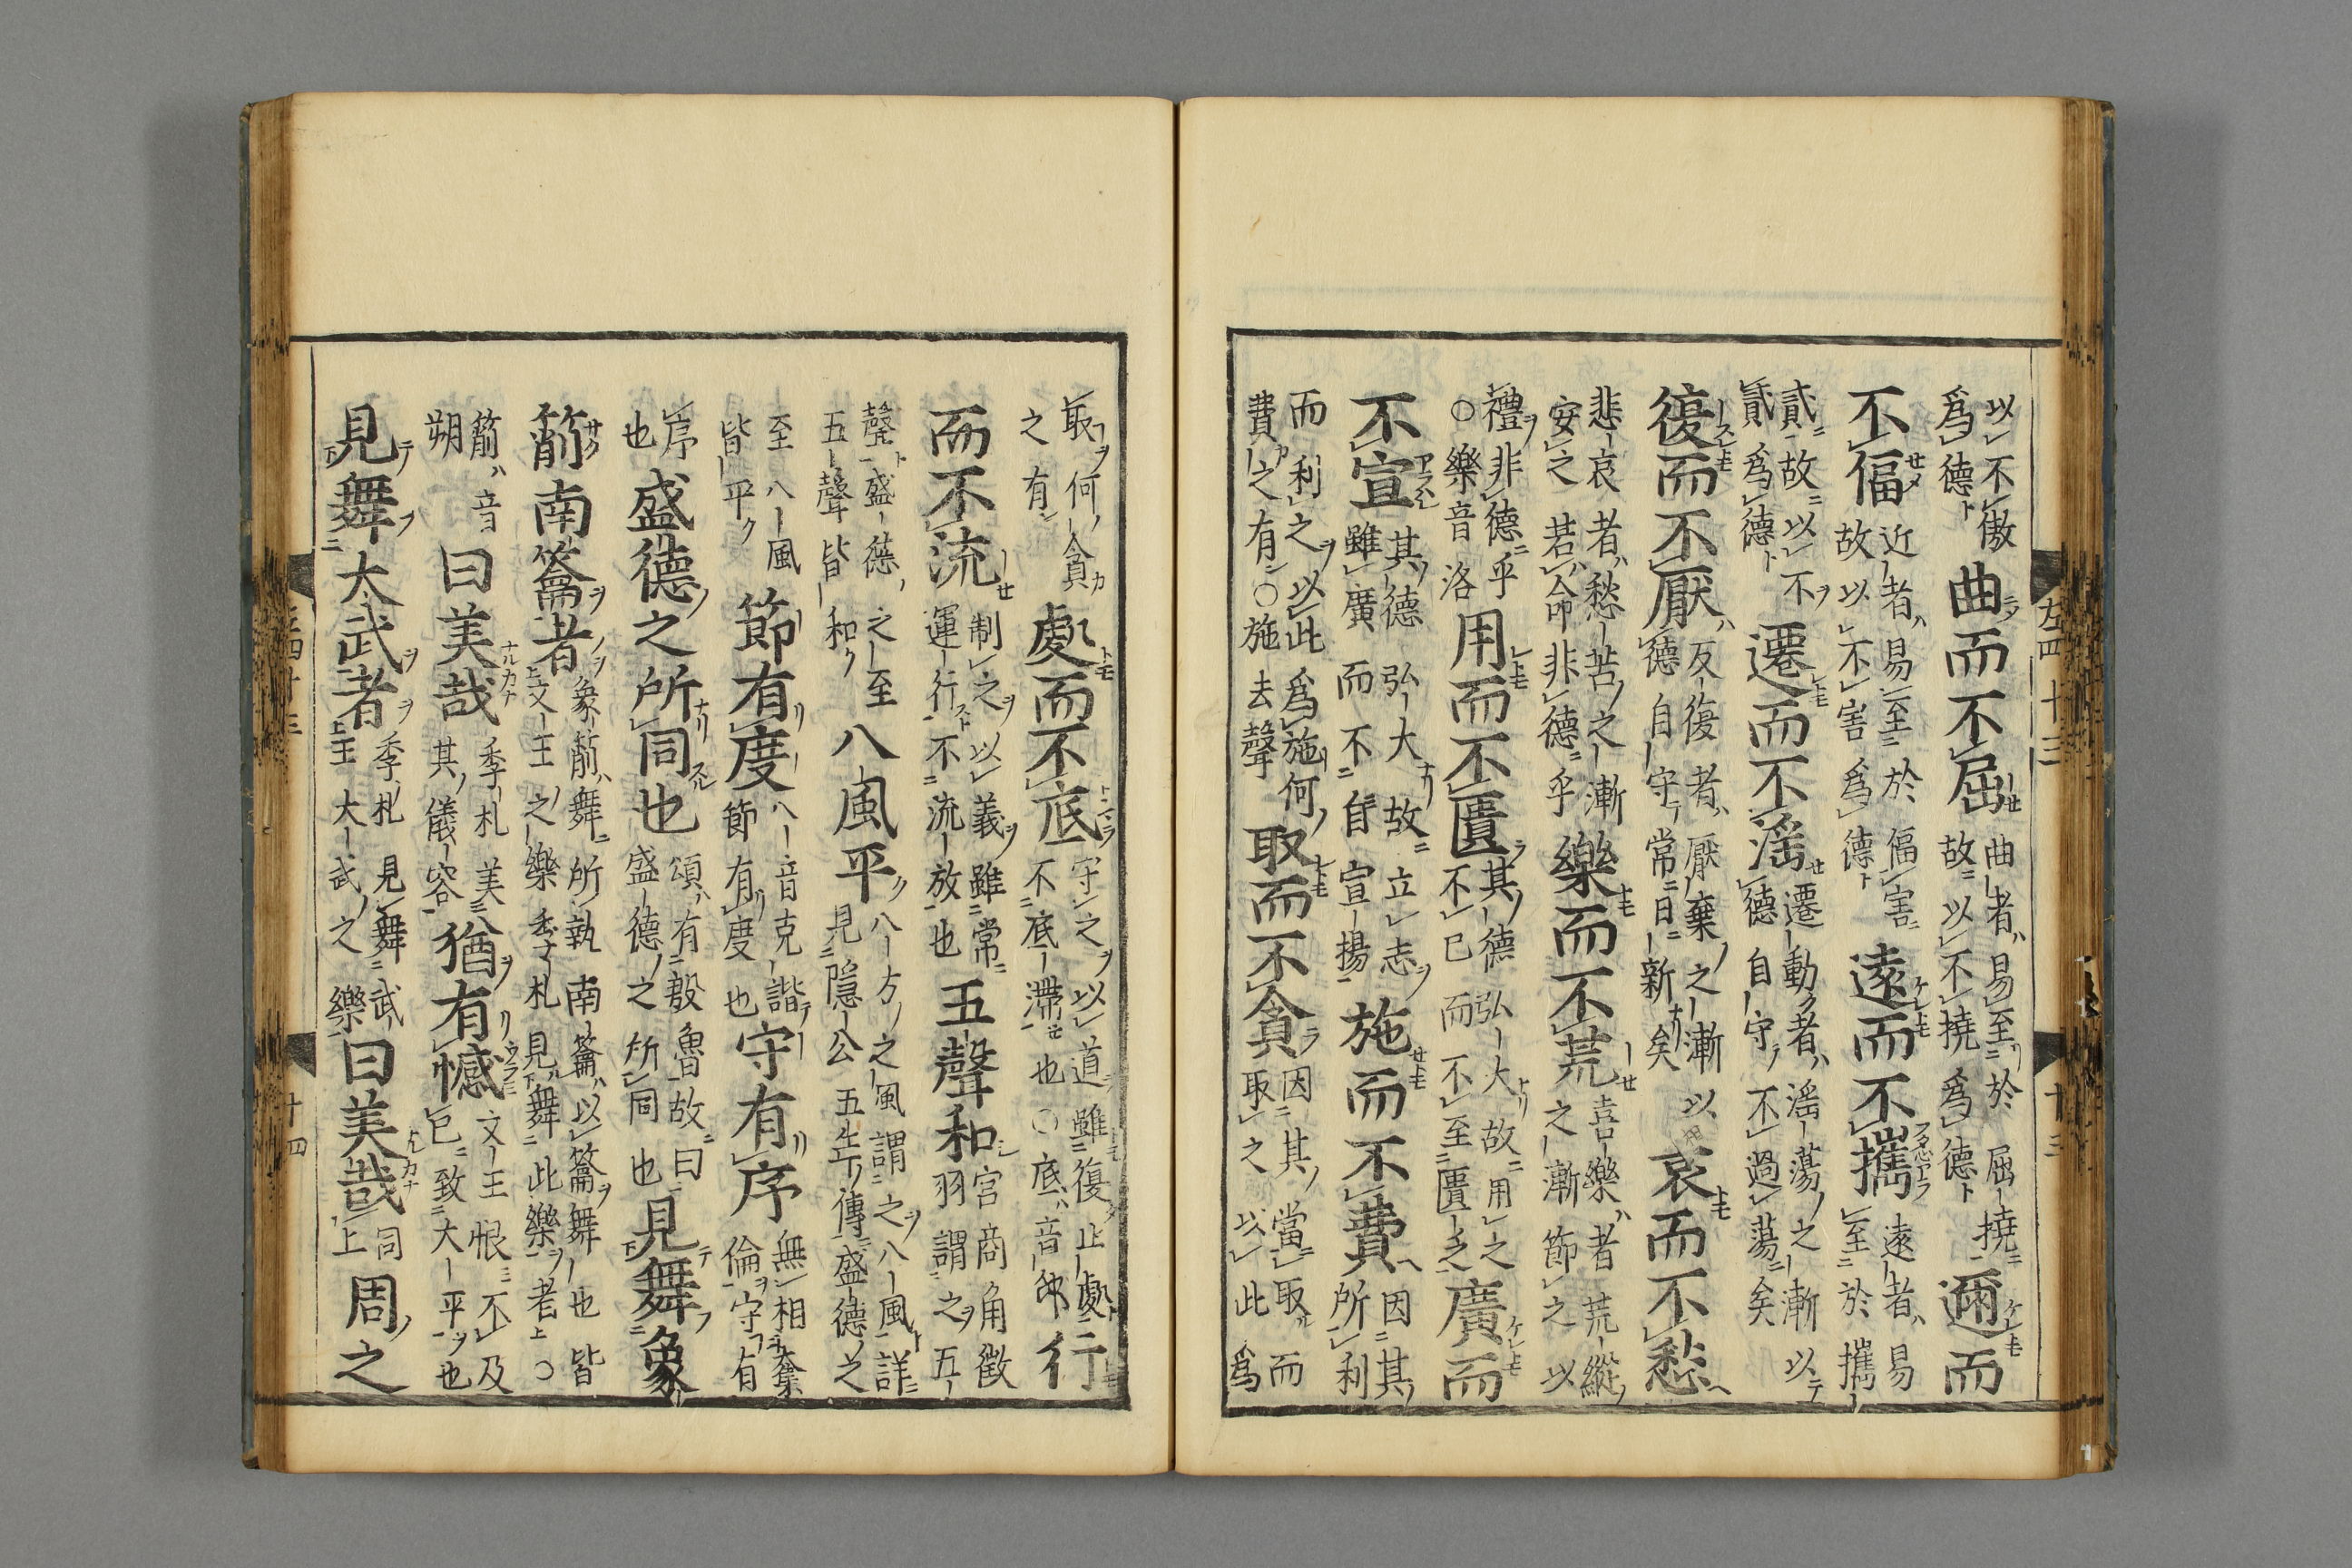 左四十三 十三
以不傲為德曲而不屈曲者易至於屈撓故以不撓為德邇而
不偪近者易至於偪害故以不害為德遠而不攜遠者易至於攜
貳故以不貳為德遷而不滛遷動者滛蕩之漸以德自守不過蕩矣
復而不厭反復者厭棄之漸以德自守常日新矣哀而不愁
悲哀者愁苦之漸安之若命非德乎樂而不荒喜樂者荒縱之漸節之以
禮非德乎○樂音洛用而不匱其德弘大故用之不已而不至匱乏廣而
不宣其德弘大故立志雖廣而不自宣揚施而不費因其所利
而利之以此為施何費之有○施去聲取而不貪因其當取而取之以此為
取何貪之有處而不底守之以道雖復止處不底滯也○底音邸行
而不流制之以義雖常運行不流放也五聲和宮商角徵羽謂之五
聲盛德之至五聲皆和八風平八方之風謂之八風詳見隱公五年傳盛德之
至八風皆平節有度八音克諧節有度也守有序無相奪倫守有
序也盛德之所同也頌有殷魯故曰盛德之所同也見舞象
箾南籥者象箾舞所執南籥以籥舞也皆文王之樂季札見舞此樂者○
箾音朔曰美哉季札美其儀容猶有憾文王恨不及已致大平也
見舞大武者季札見舞武王大武之樂曰美哉同上周之
左四十三 十四